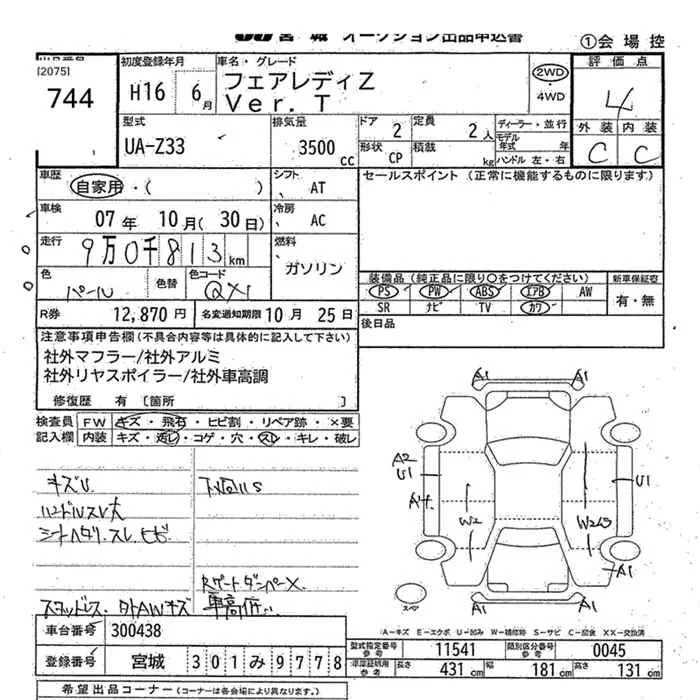 宮城 オークション出品申込書
①会場控
出品番号
(2075)
744
初度登録年月
H16 6月
車名・グレード
フェアレディZ
Ver. T
2WD
・4WD
評価点
4
外装 内装
C C
型式
UA-Z33
排気量
3500cc
ドア 2
形状 CP
定員 2人
積載 kg
ディーラー・並行
モデル年式 年
ハンドル 左・右
車歴
自家用・( )
シフト AT
セールスポイント (正常に機能するものに限ります)
車検
07年 10月(30日)
冷房 AC
走行
9万0千813km
燃料
ガソリン
色 パール
色替
色コード QX1
装備品(純正品に限り○をつけてください)
新車保証書
PS PW ABS エアB AW
SR ナビ TV カワ
有・無
R券 12,870円
名変通知期限 10月 25日
後日品
注意事項申告欄(不具合内容等は具体的に記入して下さい)
社外マフラー/社外アルミ
社外リヤスポイラー/社外車高調
修復歴 有 [箇所 ]
検査員記入欄
FW キズ・飛石・ヒビ割・リペア跡・×要
内装 キズ・汚レ・コゲ・穴・スレ・キレ・破レ
キズU
ハンドルスレ大
シートヘタリ.スレ.ヒビ
下回りS
Rゲートダンパー×
スタッドレス.
外AWキズ
車高低
A1 A1
A2
U1
A4
W2
U1
W2
A1
A1 A1
スペア
A-キズ E-エクボ U-凹み W-補修跡 S-サビ C-腐食 XX-交換済
車台番号 300438
登録番号 宮城 301み9778
型式指定番号参考 11541
類別区分番号参考 0045
車庫証明用参考 長さ 431cm 幅 181cm 高さ 131cm
希望出品コーナー(コーナーは各会場により異なります。)